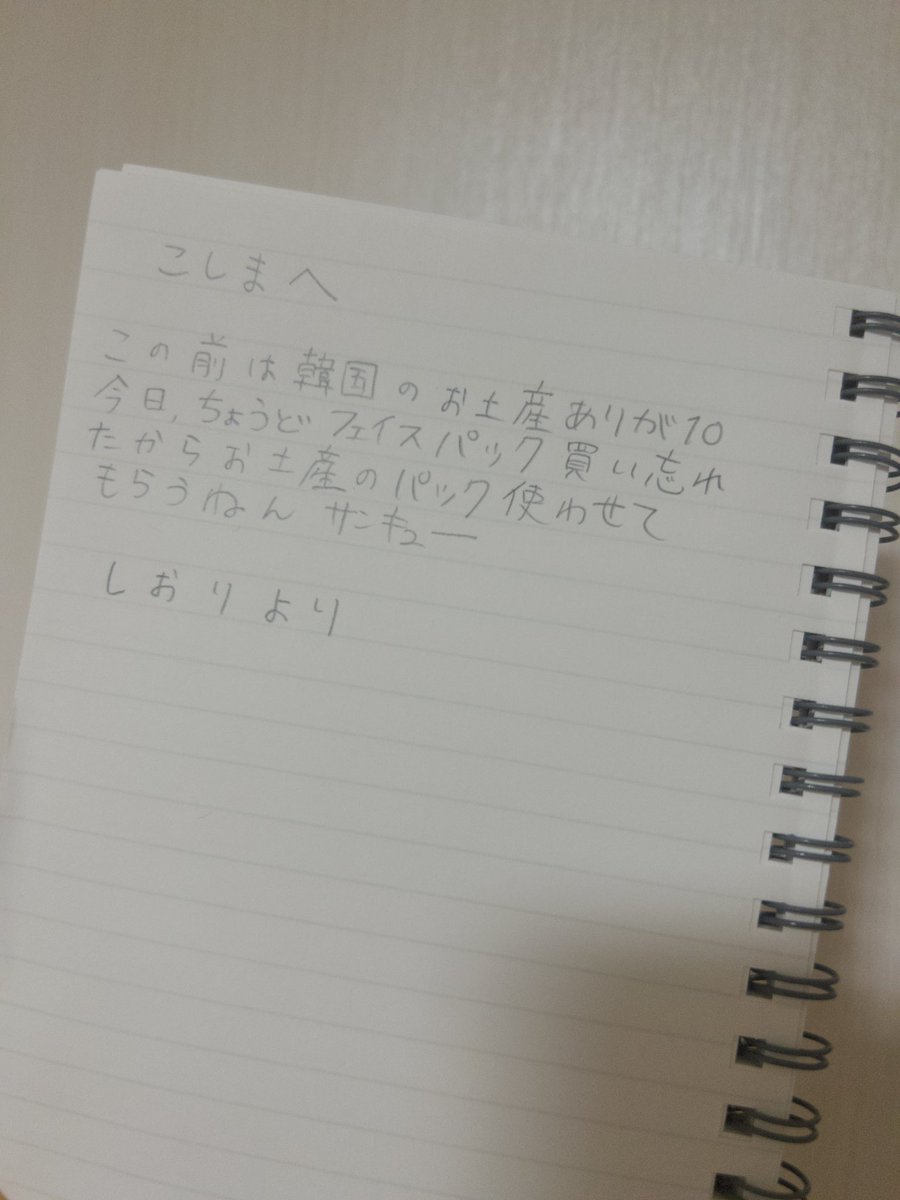 こしまへ
この前は韓国のお土産ありが10
今日、ちょうどフェイスパック買い忘れ
たからお土産のパック使わせて
もらうねん サンキュー
しおりより